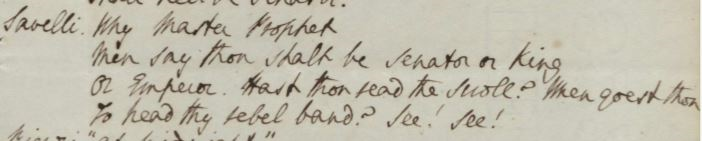 shall never be Senator.
Savelli. Why Master Prophet
Men say thou shalt be Senator or King
Or Emperor. Hast thou read the scroll? When goest thou
To head thy rebel band? See! See!
Rienzi "at midnight"